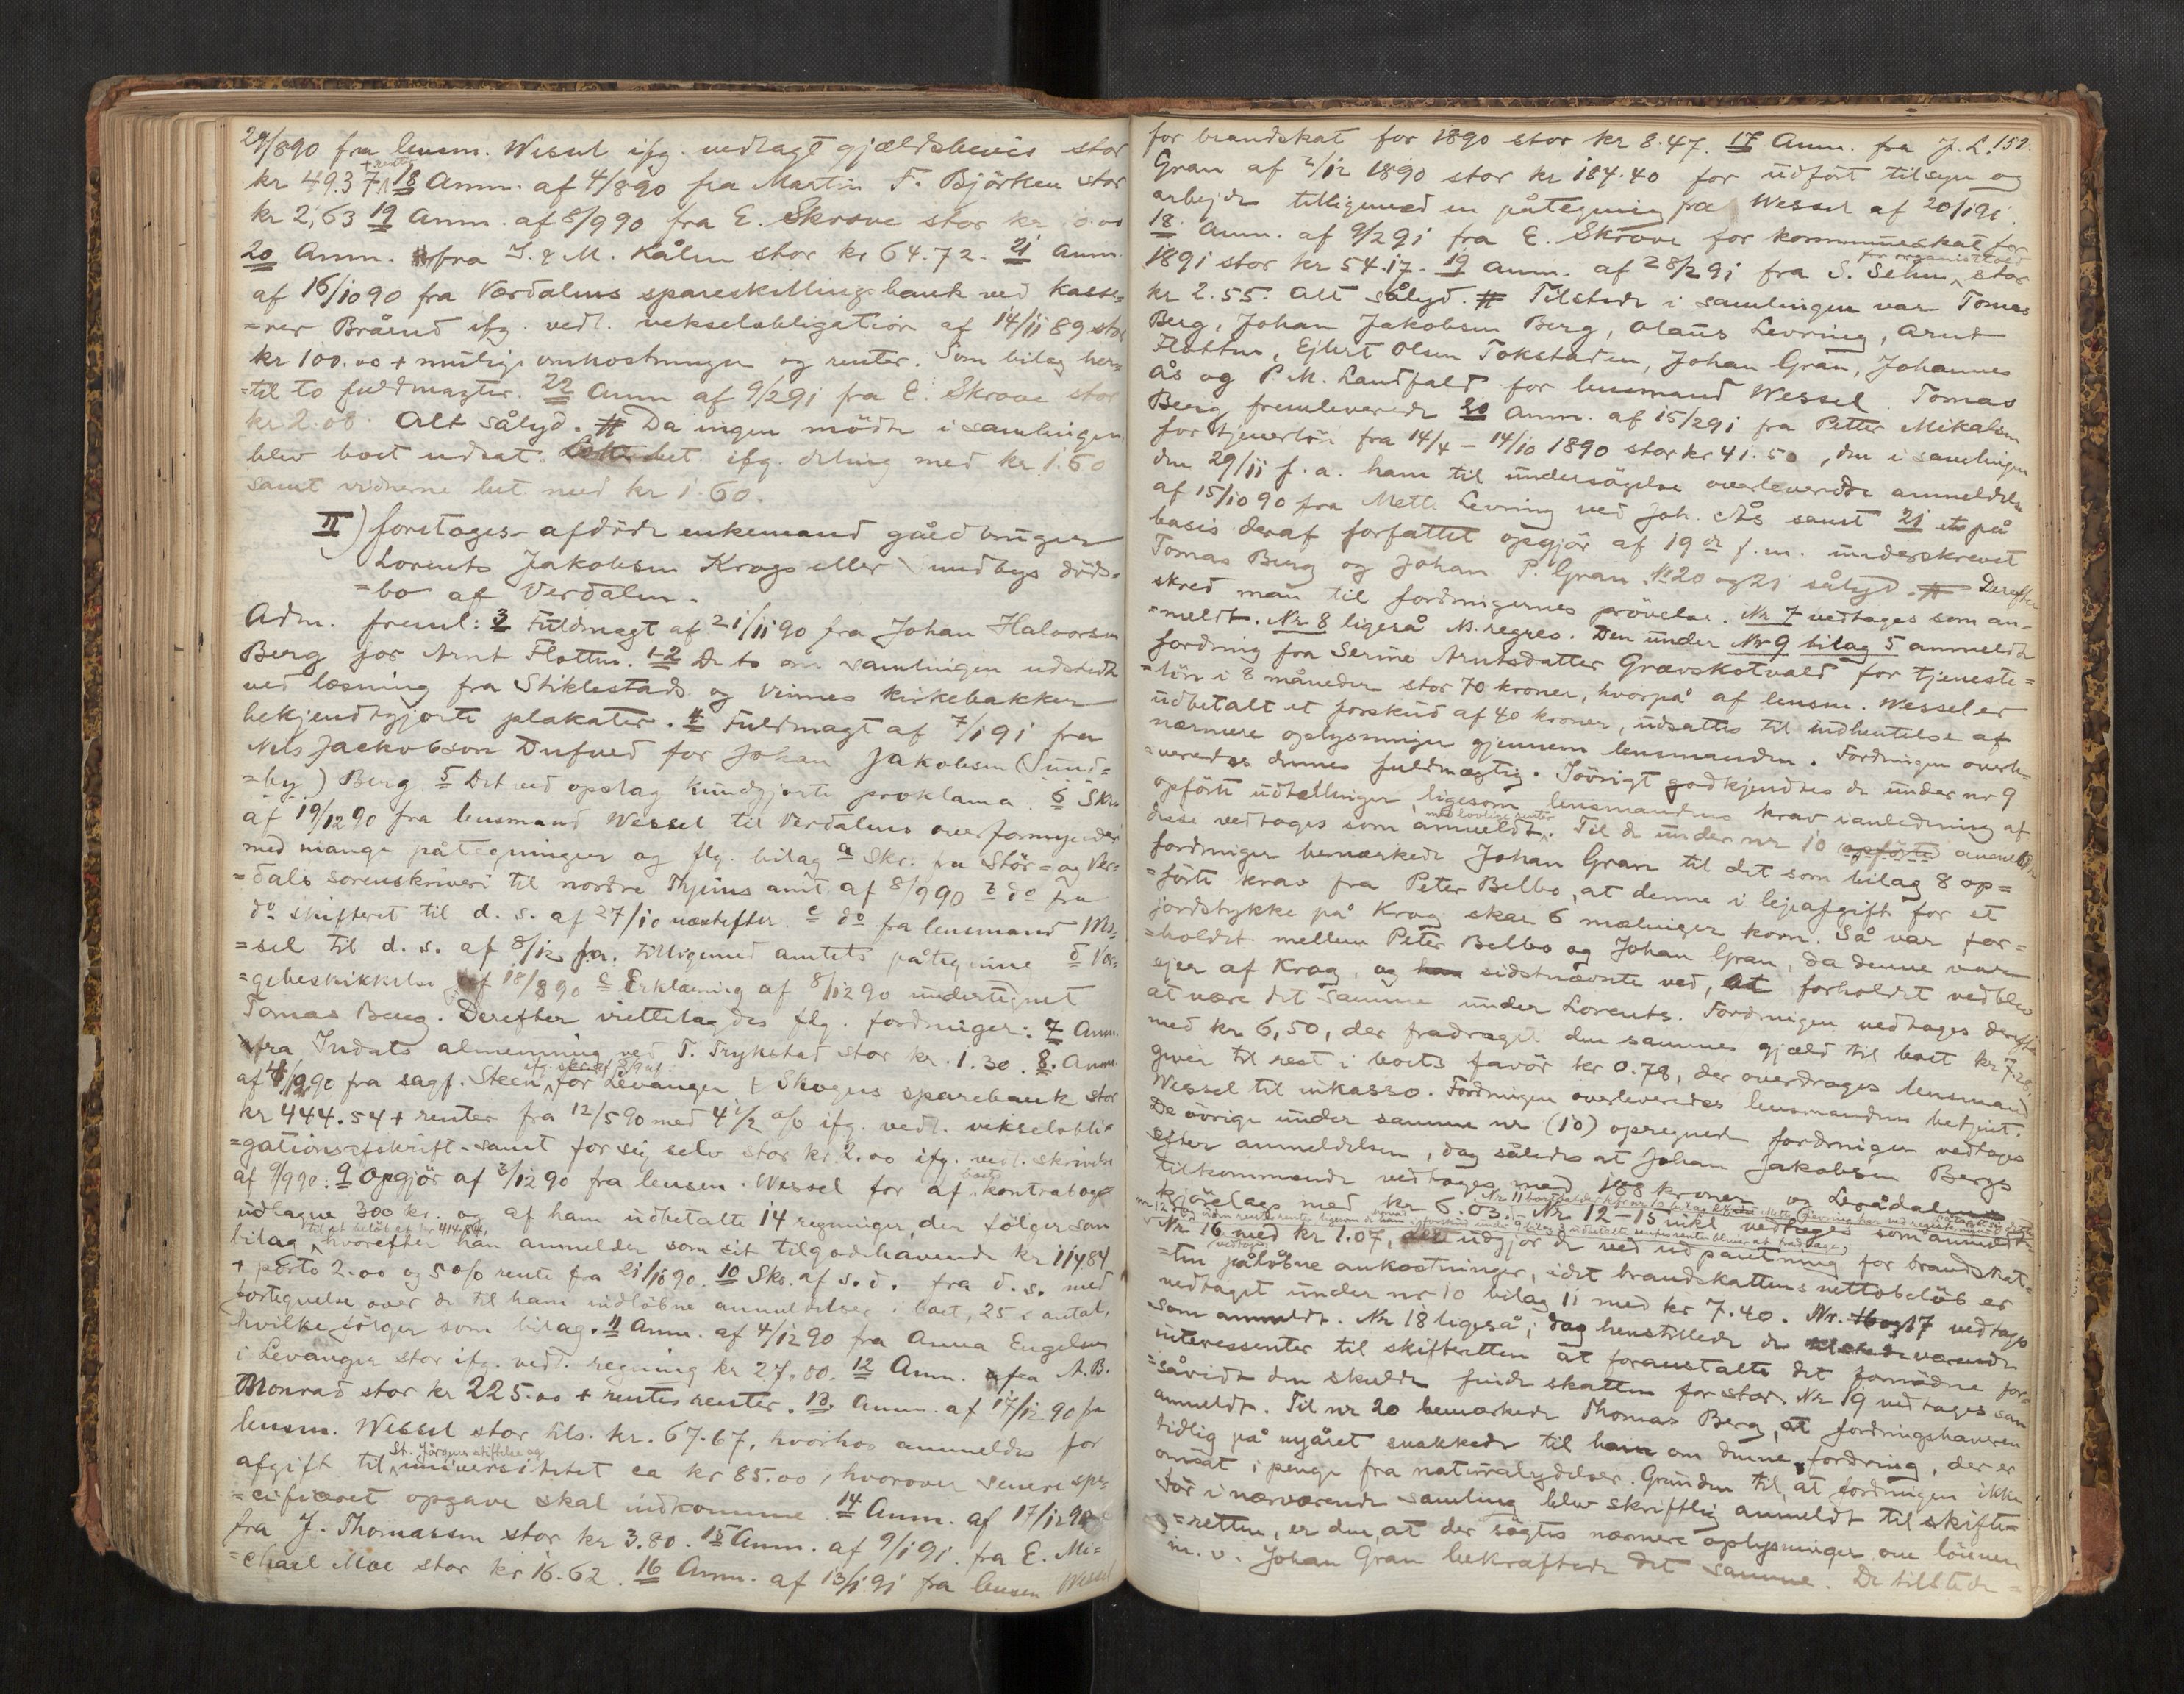 29/890 fra lensm. Wessel ifg. vedlagt gjældsbevis stor
kr 49.37 + renter 18 Anm. af 4/890 fra Martin F. Björken stor
kr 2,63 19 Anm. af 8/990 fra E. Skrove stor kr
20 Anm. fra J. & M. Kålen stor kr 64.72. 21 Anm.
af 16/1090 fra Værdalens spareskillingsbank ved kasse=
=rer Brånd ifg. vedl. vekselobligation af 14/11 89 stor
kr 100.00 + mulige omkostninger og renter. Som bilag her=
=til to fuldmagter. 22 Anm af 9/291 fra E. Skrove stor
kr 2.08. Alt sålyd. # Da ingen mödte i samlingen
blev boet udsat. ifg. deling med kr 1.60
samt vidnerne bet. med kr 1.60.
II) foretoges afdöde enkemand gårdbruger
Lorents Jakobsen Krogs eller Sundbys döds=
=bo af Verdalen.
Adm. freml: 3 Fuldmagt af 21/11 90 fra Johan Halvorsen
Berg for Arnt Flotten. 1-2 De to om samlingen udstedte
ved læsning fra Stiklestads og Vinnes kirkebakker
bekjendtgjorte plakater. 4 Fuldmagt af 7/191 fra
Nels Jackobson Dufved for Johan Jakobsen (Sund=
=by) Berg. 5 Det ved opslag kundgjorte proklama. 6 Skr.
af 19/1290 fra lensmand Wessel til Verdalens overformynderi
med mange påtegninger og flg. bilag a Skr. fra Stör= og Ver=
=dals sorenskriveri til nordre Thjems amt af 8/990 b do fra
do skifteret til d. s. af 27/10 næstefter. c do fra lensmand Wes=
=sel til d. s. af 8/12 f.a. tilligemed amtets påtegning d Vær=
=gebeskikkelse af 18/890 e Erklæring af 8/1290 undertegnet
Tomas Berg. Derefter viettelagdes flg. fordringer: 7 Anm.
fra Indals almenning ved T. Trykstad stor kr. 1.30. 8. Anm.
af 4/1290 fra sagf. Steen for Levanger & Skogns sparebank stor
kr 444.54 + renter fra 12/590 med 4 1/2 o/o ifg. vedl. vekselobli=
=gationsafskrift samt for sig selv stor kr. 2.00 ifg. vedl. skrivelse
af 9/990. 9 Opgjör af 3/1290 fra lensm. Wessel for af boets kontrabog
udlagne 300 kr. og af ham udbetalte 14 regninger, der fölger som
bilag til et belöb af kr 414.84, hvorefter han anmelder som sit tilgodehavende kr 11484
+ porto 2.00 og 5 o/o rente fra 21/1090. 10 Skr. af s. d. fra d. s. med
fortegnelse over de til ham indlöbne anmeldelser i boet, 25 i antal,
hvilke fölger som bilag. 11 Anm. af 4/1290 fra Anna Engelsen
i Levanger stor ifg. vedl. regning kr 27.80. 12 Anm. fra A.B.
Monrad stor kr 225.00 + rentes renter. 13. Anm. af 17/1290 fra
lensm. Wessel stor tils. kr. 67.67, hvorhos anmeldes for
afgift til St. Jörgens stiftelse og universitetet ca kr 85.00, hvorover senere spe=
=cificeret opgave skal indkomme. 14 Anm. af 17/1290
fra J. Thomassen stor kr 3.80. 15 Anm. af 9/191 fra E. Mi=
=chael Moe stor kr 16.62. 16 Anm. af 13/191 fra lensm Wessel
for brandskat for 1890 stor kr 8.47. 17 Anm. fra J. L. 152.
Gran af 2/12 1890 stor kr 184.40 for udfört tilsyn og
arbejde tilligemed en påtegning fra Wessel af 20/191.
18. Anm. af 9/291 fra E. Skrove for kommuneskat for
1891 stor kr 54.17. 19 Anm. af 28/291 fra S. Sehm for organisthold stor
kr 2.55. Alt sålyd. # Tilstede i samlingen var Tomas
Berg, Johan Jakobsen Berg, Olaus Levring, Arnt
Flotten, Ejlert Olsen Tokstaden, Johan Gran, Johannes
Ås og P. M. Landfald for lensmand Wessel. Tomas
Berg fremleverede 20 Anm. af 15/291 fra Petter Mikalsen
for tjenerlön fra 14/4 - 14/10 1890 stor kr 41.50, den i samlingen
den 29/11 f. a. ham til undersögelse overleverede anmeldelse
af 15/1090 fra Mette Levring ved Joh. Ås samt 21 et på
basis deraf forfattet opgjör af 19de f. m. underskrevet
Tomas Berg og Johan P. Gran. No 20 og 21 sålyd. # Derefter
skred man til fordringernes prövelse. Nr 7 vedtages som an=
=meldt. Nr 8 ligeså N. regres. Den under Nr 9 bilag 5 anmeldte
fordring fra Serine Arntsdatter Grævskotvald for tjeneste=
=lön i 8 måneder stor 70 kroner, hvorpå af lensm. Wessel er
udbetalt et forskud af 40 kroner, udsattes til indhentelse af
nærmere oplysninger gjennem lensmanden. Fordringen overle=
=veredes dennes fuldmægtig. Iövrigt godkjendtes de under nr 9
opförte udtællinger, ligesom lensmandens krav i anledning af
disse vedtages som anmeldt med lovlige renter. Til de under nr 10 opförte anmeldte
fordringer bemærkede Johan Gran til det som bilag 8 op=
=förte krav fra Peter Belbo, at denne i lejeafgift for et
jordstykke på Krog skal 6 mælinger korn. Så var for=
=holdet mellem Peter Belbo og Johan Gran, da denne var
ejer af Krog, og sidstnævnte ved, at forholdet vedblev
at være det samme under Lorents. Fordringen vedtages derefter
med kr 6,50, der fradraget den sammes gjæld til boet kr 7.28,
giver til rest i boets favör kr 0.78, der overdrages lensmand
Wessel til inkasso. Fordringen overleveredes lensmandens betjent.
De övrige under samme nr (10) opregnede fordringer vedtages
efter anmeldelsen, dog således at Johan Jakobsen Bergs
tilkommende vedtages med 188 kroner og Leådalens
kjörelag med kr 6.03. Nr 12-15 inkl vedtages som anmeldt.
Nr 16 vedtages med kr 1.07, udgjör de ved udpantning for brandskat=
=ten påløbne omkostninger, idet brandskattens nettobelöb er
vedtaget under nr 10 bilag 11 med kr 7.40. Nr. 17 vedtages
som anmeldt. Nr 18 ligeså; dog henstillede de tilstedeværende
interessenter til skifteretten at foranstalte det fornødne for=
=såvidt den skulde finde skatten for stor. Nr 19 vedtages som
anmeldt. Til nr 20 bemærkede Thomas Berg, at fordringshaveren
tidlig på nyåret snakkede til ham om denne fordring, der er
omsat i penge fra naturalydelser. Grunden til, at fordringen ikke
för i nærværende samling blev skriftlig anmeldt til skifte=
=retten, er den, at der sögtes nærmere oplysninger om lönnen
m. v. Johan Gran bekræftede det samme. De tilstede=